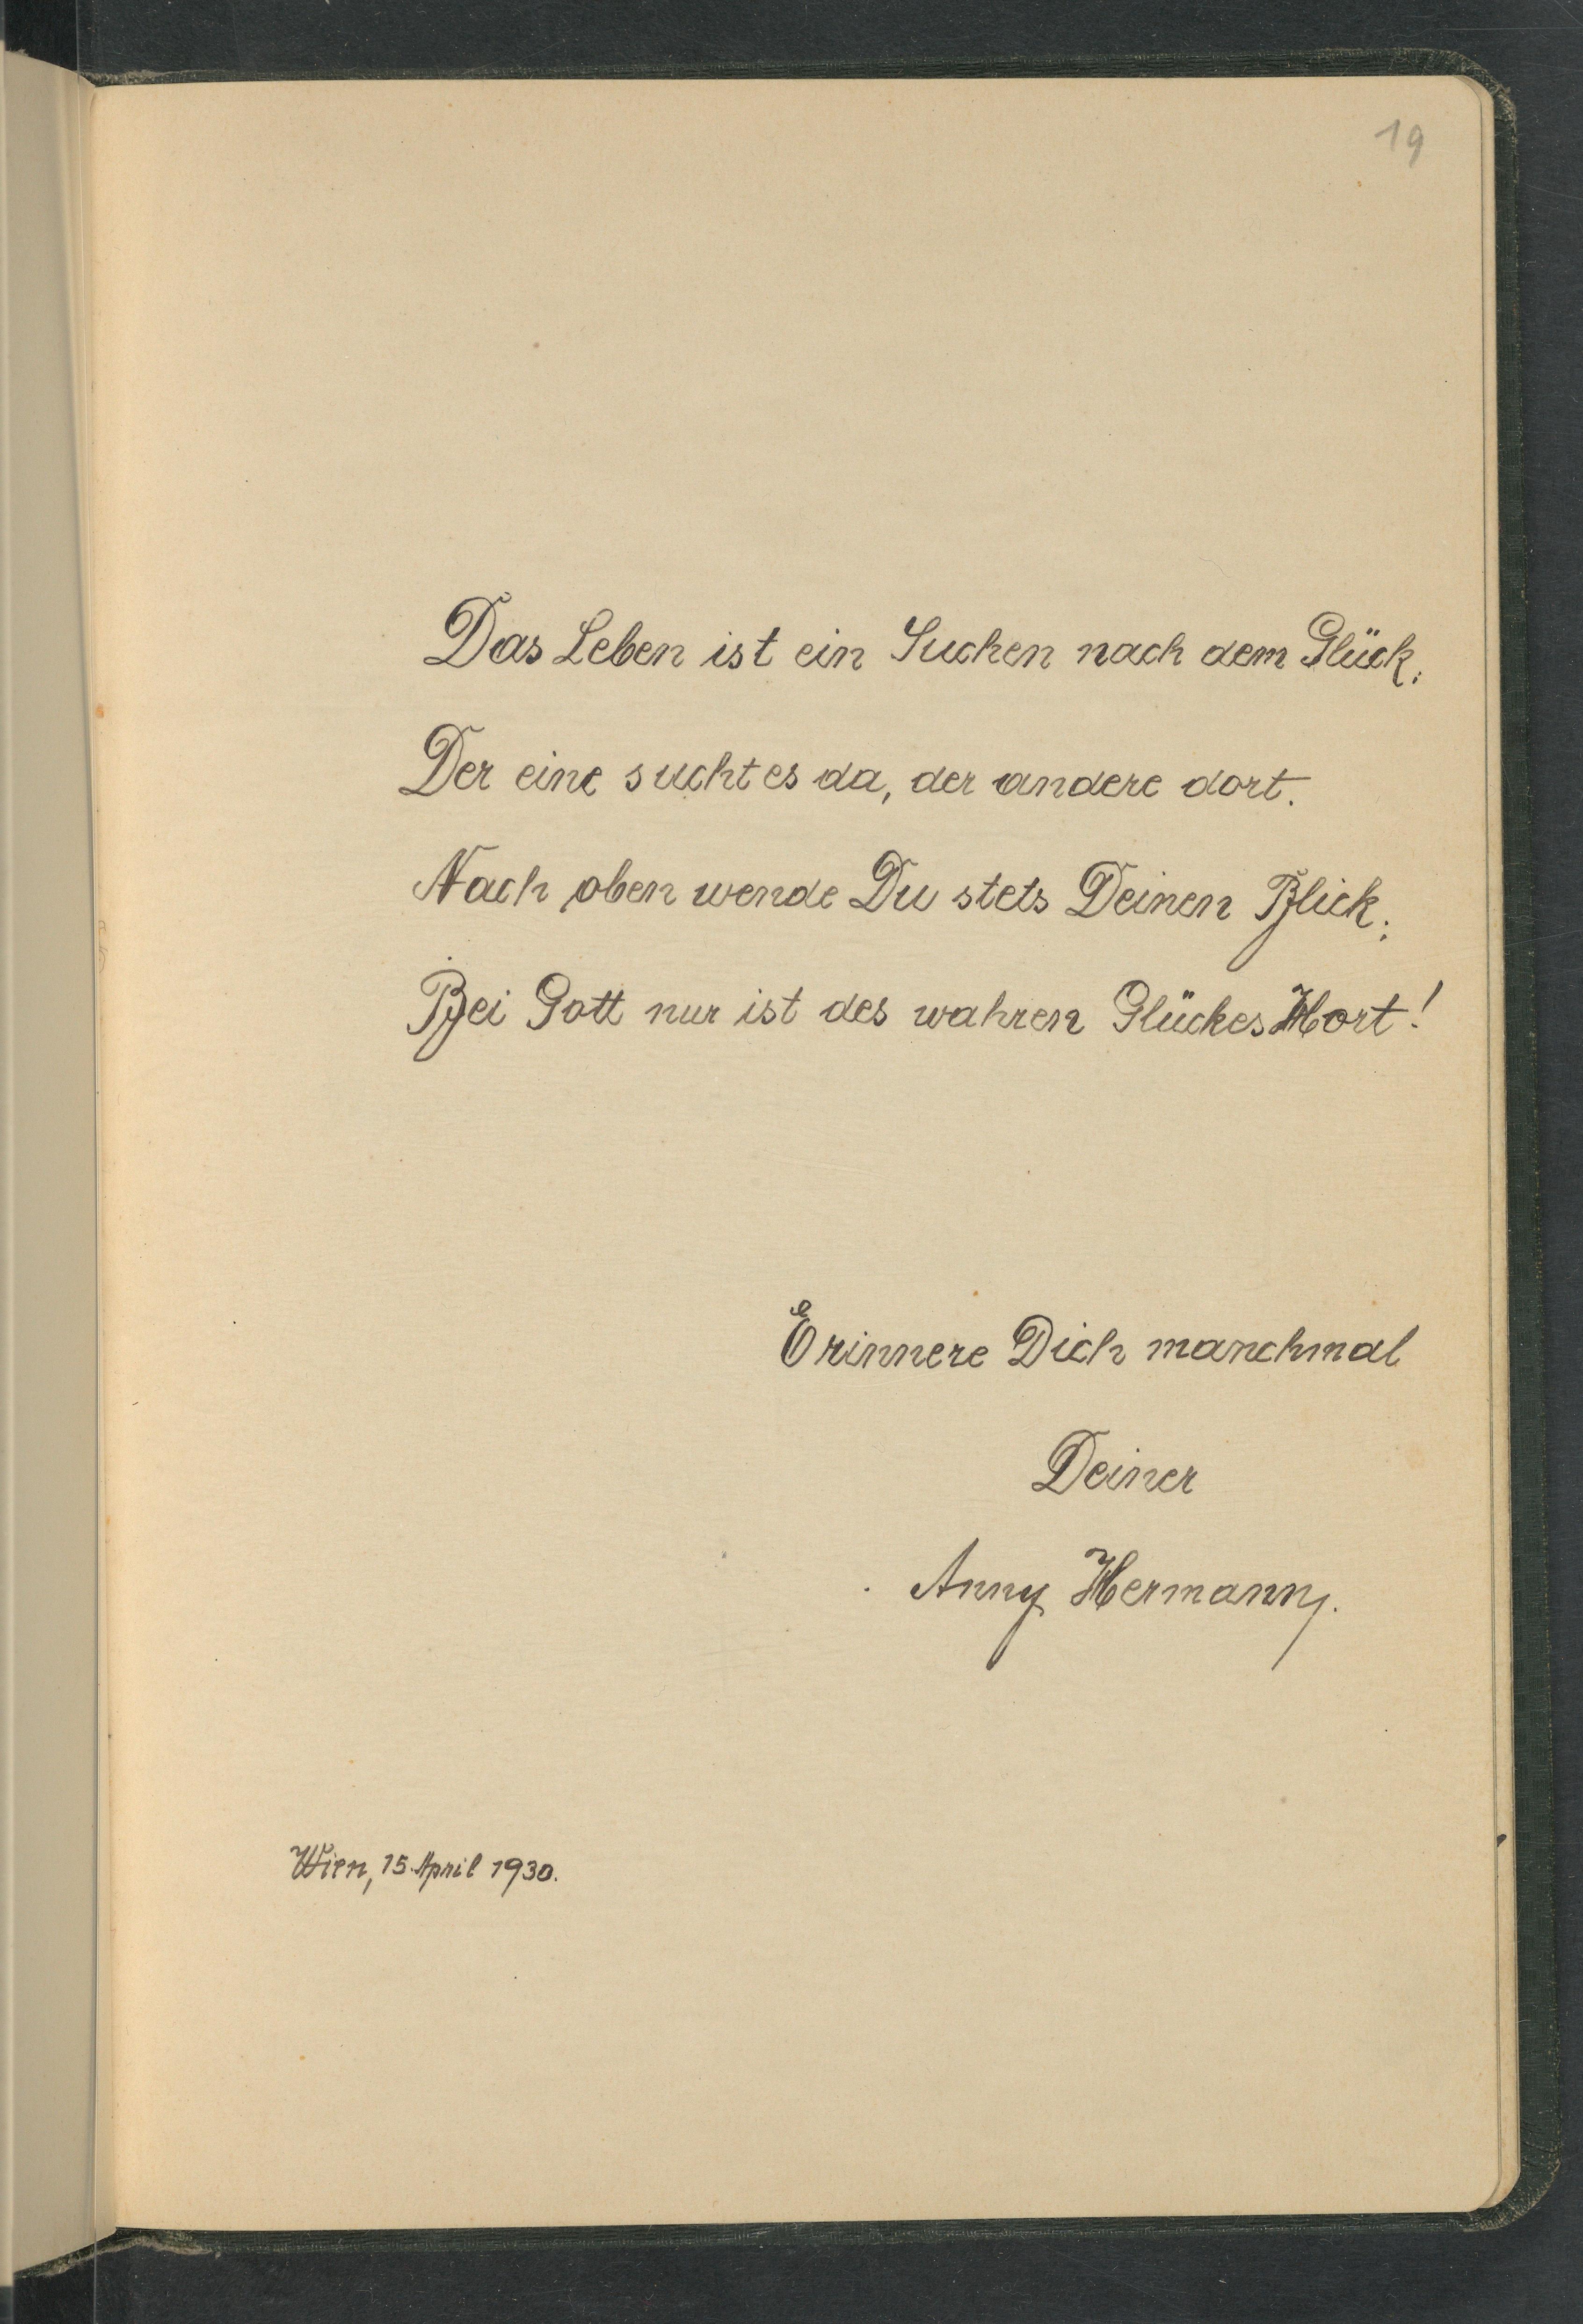 19
Das Leben ist ein Suchen nach dem Glück.
Der eine sucht es da, der andere dort.
Nach oben wende Du stets Deinen Blick;
Bei Gott nur ist des wahren Glückes Hort!
Erinnere Dich manchmal
Deiner
Anny Hermann.
Wien, 15. April 1930.